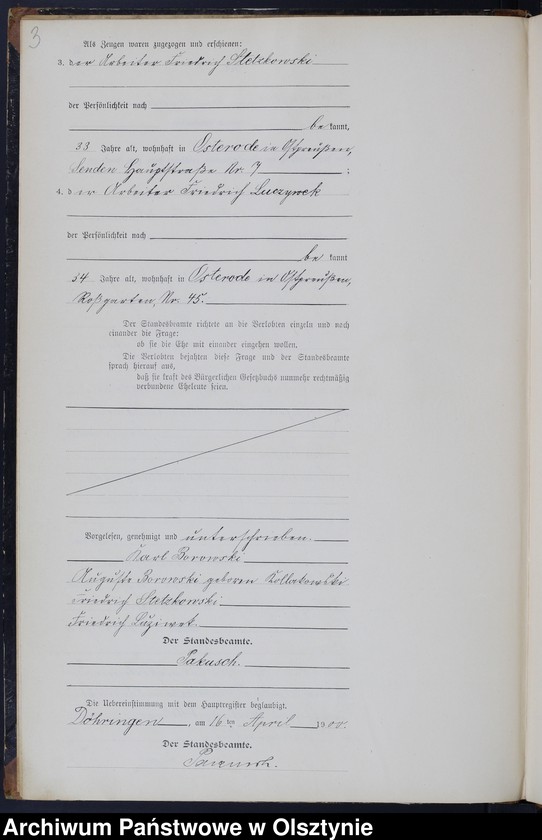 3
Als Zeugen waren zugezogen und erschienen:
3. der Arbeiter Friedrich Stelzkowski
der Persönlichkeit nach
be kannt,
33 Jahre alt, wohnhaft in Osterode in Ostpreußen,
Senden Hauptstraße Nr. 7 ;
4. der Arbeiter Friedrich Luczynek
der Persönlichkeit nach
be kannt
54 Jahre alt, wohnhaft in Osterode in Ostpreußen,
Roßgarten, Nr. 45.
Der Standesbeamte richtete an die Verlobten einzeln und nach
einander die Frage:
ob sie die Ehe mit einander eingehen wollen.
Die Verlobten bejahten diese Frage und der Standesbeamte
sprach hierauf aus,
daß sie kraft des Bürgerlichen Gesetzbuchs nunmehr rechtmäßig
verbundene Eheleute seien.
Vorgelesen, genehmigt und unterschrieben.
Karl Borowski
Auguste Borowski geboren
Friedrich Stelzkowski
Friedrich
Der Standesbeamte.
Pakusch.
Die Uebereinstimmung mit dem Hauptregister beglaubigt.
Döhringen, am 16 ten April 190
Der Standesbeamte.
Archiwum Państwowe w Olsztynie